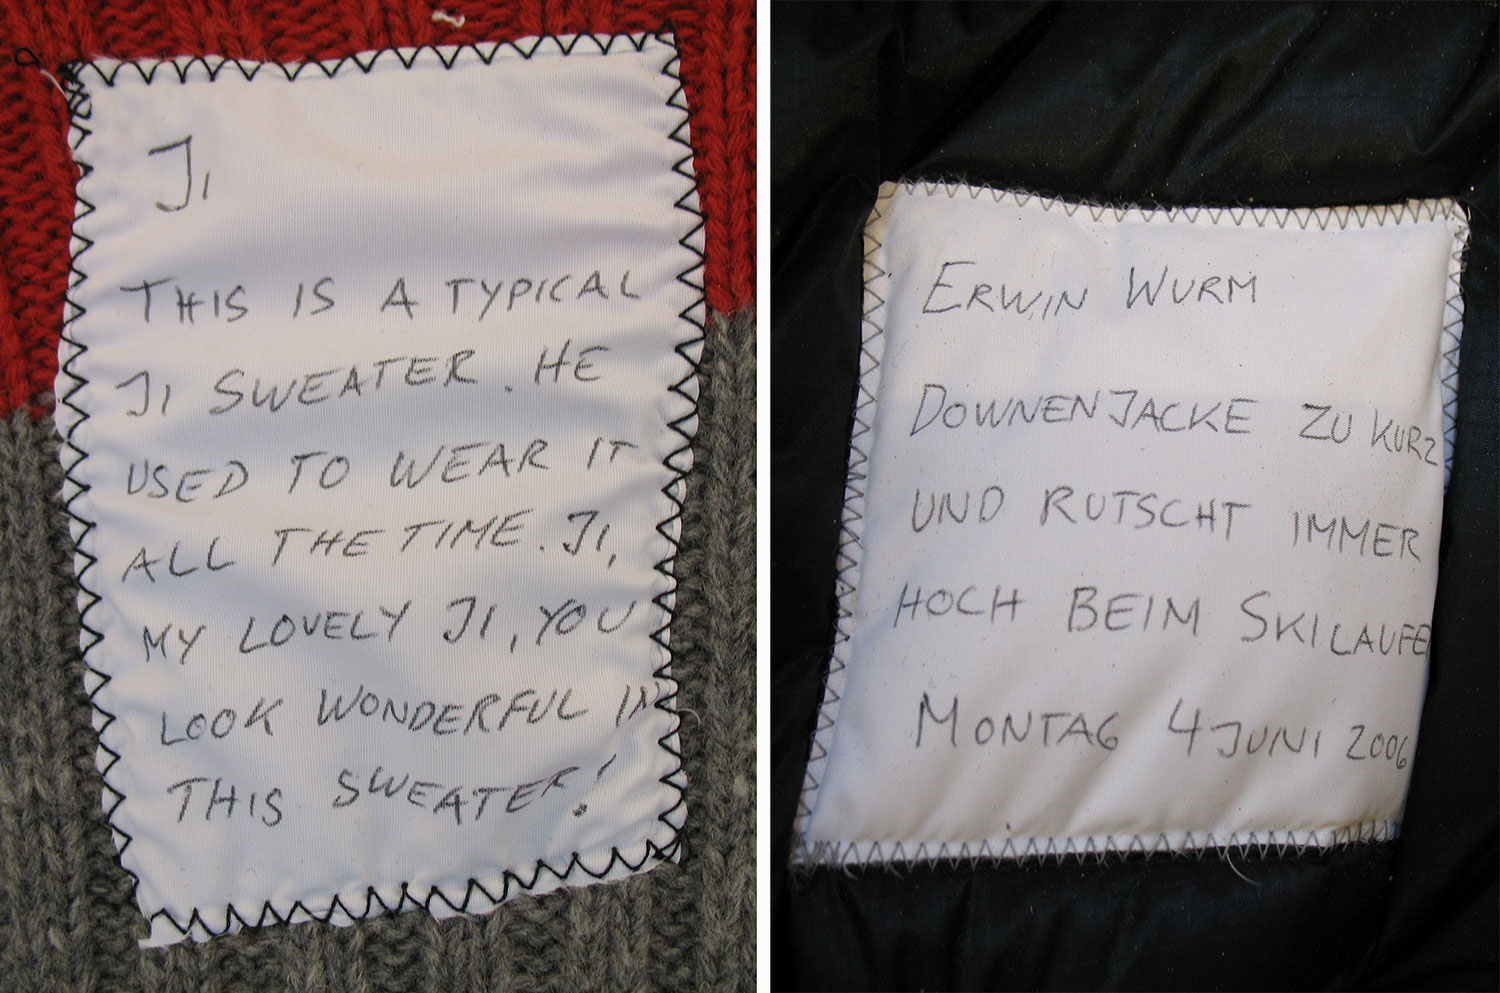 JI
THIS IS A TYPICAL
JI SWEATER. HE
USED TO WEAR IT
ALL THE TIME. JI,
MY LOVELY JI, YOU
LOOK WONDERFUL IN
THIS SWEATER!
ERWIN WURM
DOWNENJACKE ZU KURZ
UND RUTSCHT IMMER
HOCH BEIM SKILAUFE
MONTAG 4 JUNI 2006